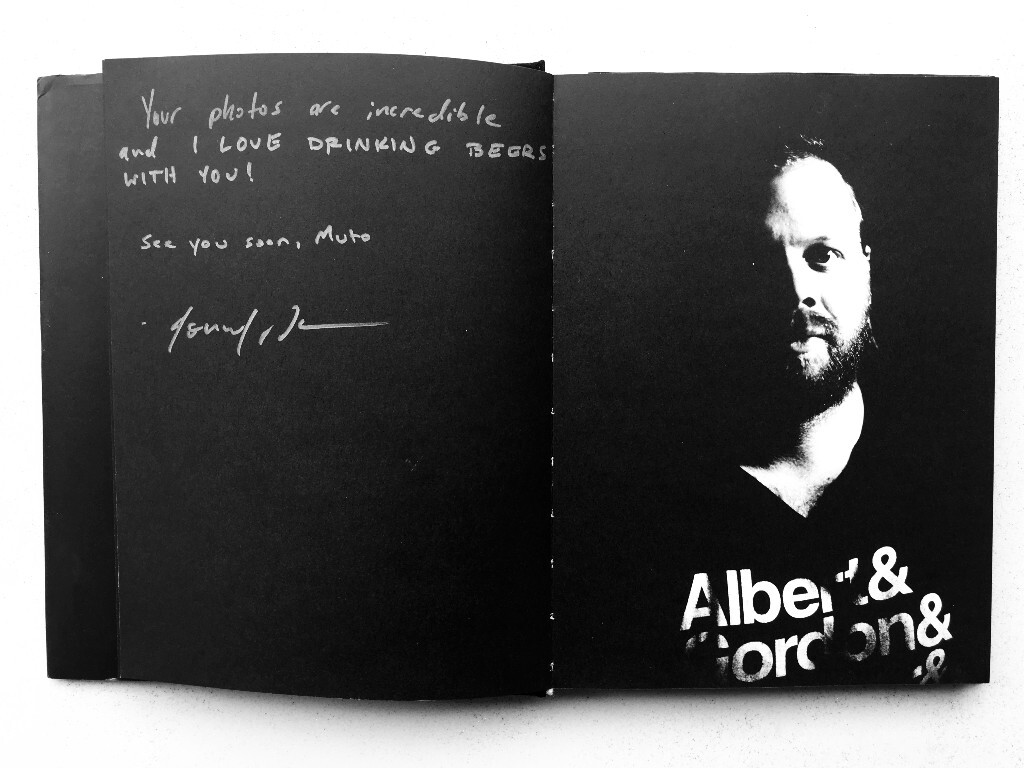 Your photos are incredible
and I LOVE DRINKING BEERS
WITH YOU!
see you soon, Muto
Albert&
Gordon&
&